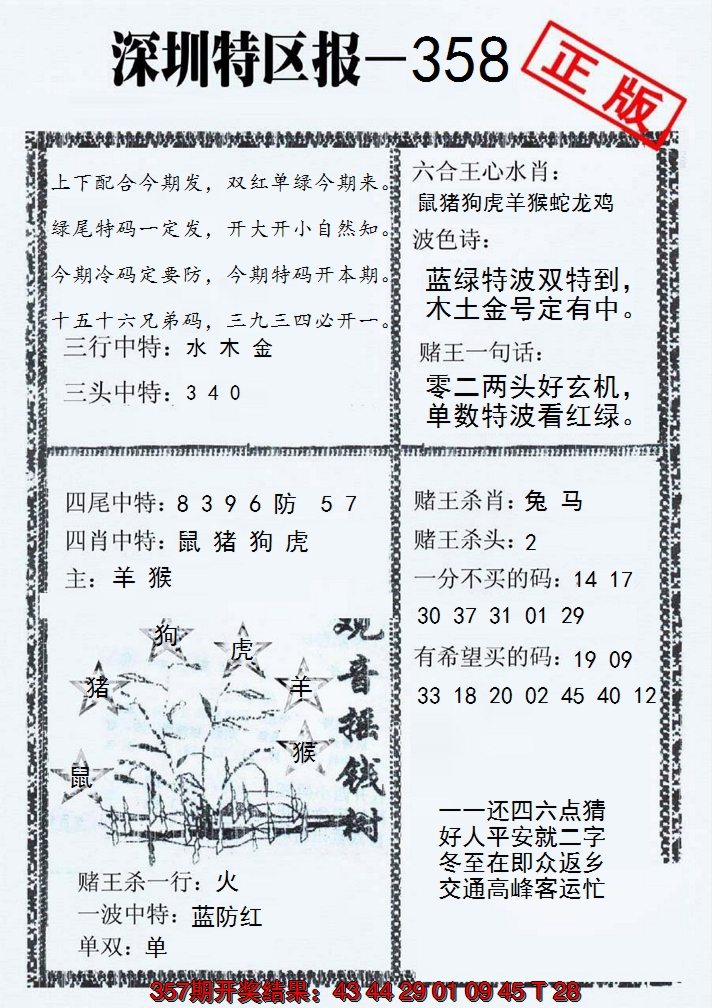 深圳特区报－358
正版
上下配合今期发，双红单绿今期来。
绿尾特码一定发，开大开小自然知。
今期冷码定要防，今期特码开本期。
十五十六兄弟码，三九三四必开一。
三行中特：水 木 金
三头中特：3 4 0
六合王心水肖：
鼠猪狗虎羊猴蛇龙鸡
波色诗：
蓝绿特波双特到，
木土金号定有中。
赌王一句话：
零二两头好玄机，
单数特波看红绿。
四尾中特：8 3 9 6 防 5 7
四肖中特：鼠 猪 狗 虎
主：羊 猴
狗
虎
猪
羊
猴
鼠
观音摇钱树
赌王杀一行：火
一波中特：蓝防红
单双：单
赌王杀肖：兔 马
赌王杀头：2
一分不买的码：14 17
30 37 31 01 29
有希望买的码：19 09
33 18 20 02 45 40 12
一一还四六点猜
好人平安就二字
冬至在即众返乡
交通高峰客运忙
357期开奖结果：43 44 29 01 09 45 T 28